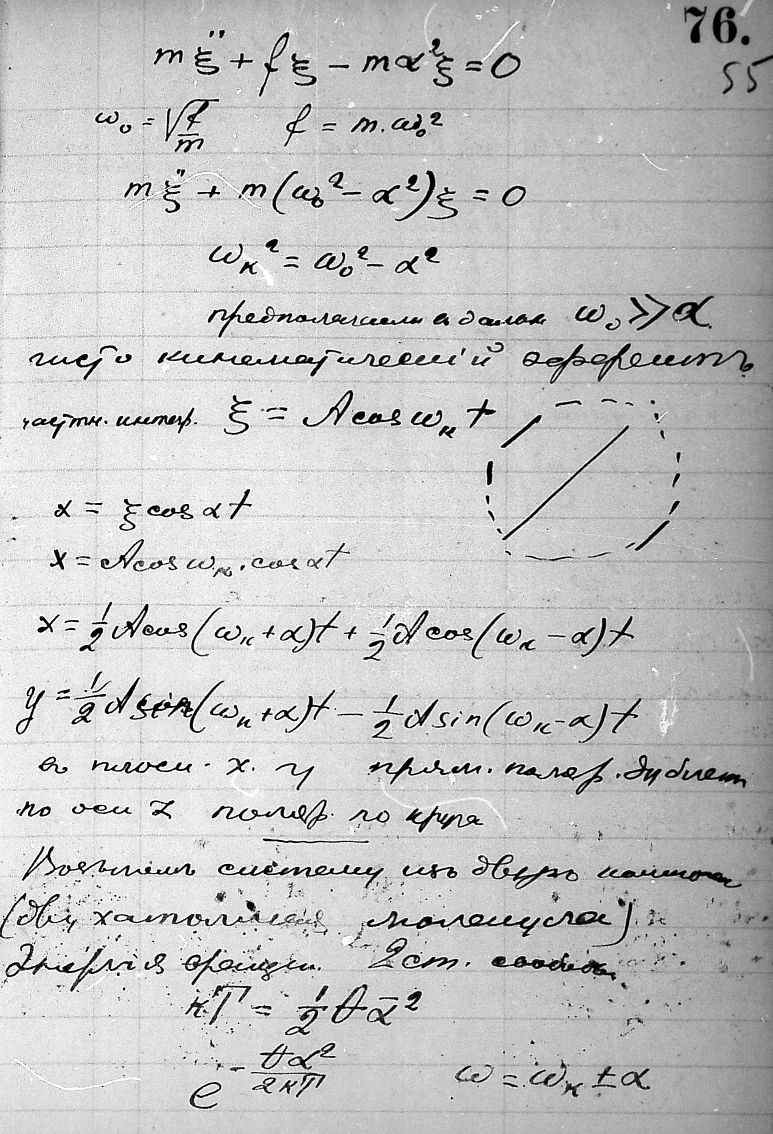 76.
55
mξ̈ + fξ − mα²ξ = 0
ω₀ = √(f/m)   f = m.ω₀²
mξ̈ + m(ω₀² − α²)ξ = 0
ωₖ² = ω₀² − α²
ω₀ ≫ α.
чисто кинематическій эффектъ
частн. интегр. ξ = A cos ωₖ t
x = ξ cos αt
x = A cos ωₖ . cos αt
x = ½ A cos (ωₖ + α)t + ½ A cos (ωₖ − α) t
y = ½ A sin (ωₖ + α)t − ½ A sin (ωₖ − α) t
въ плоск. x. y прям. поляр. дублет
по оси Z поляр. по кругу
Возьмемъ систему изъ двухъ
(двухатомная молекула)
Энергія вращен. 2 ст. свободы
кТ = ½ θ ᾱ²
e^(−θα²/2кТ)   ω = ωₖ ± α